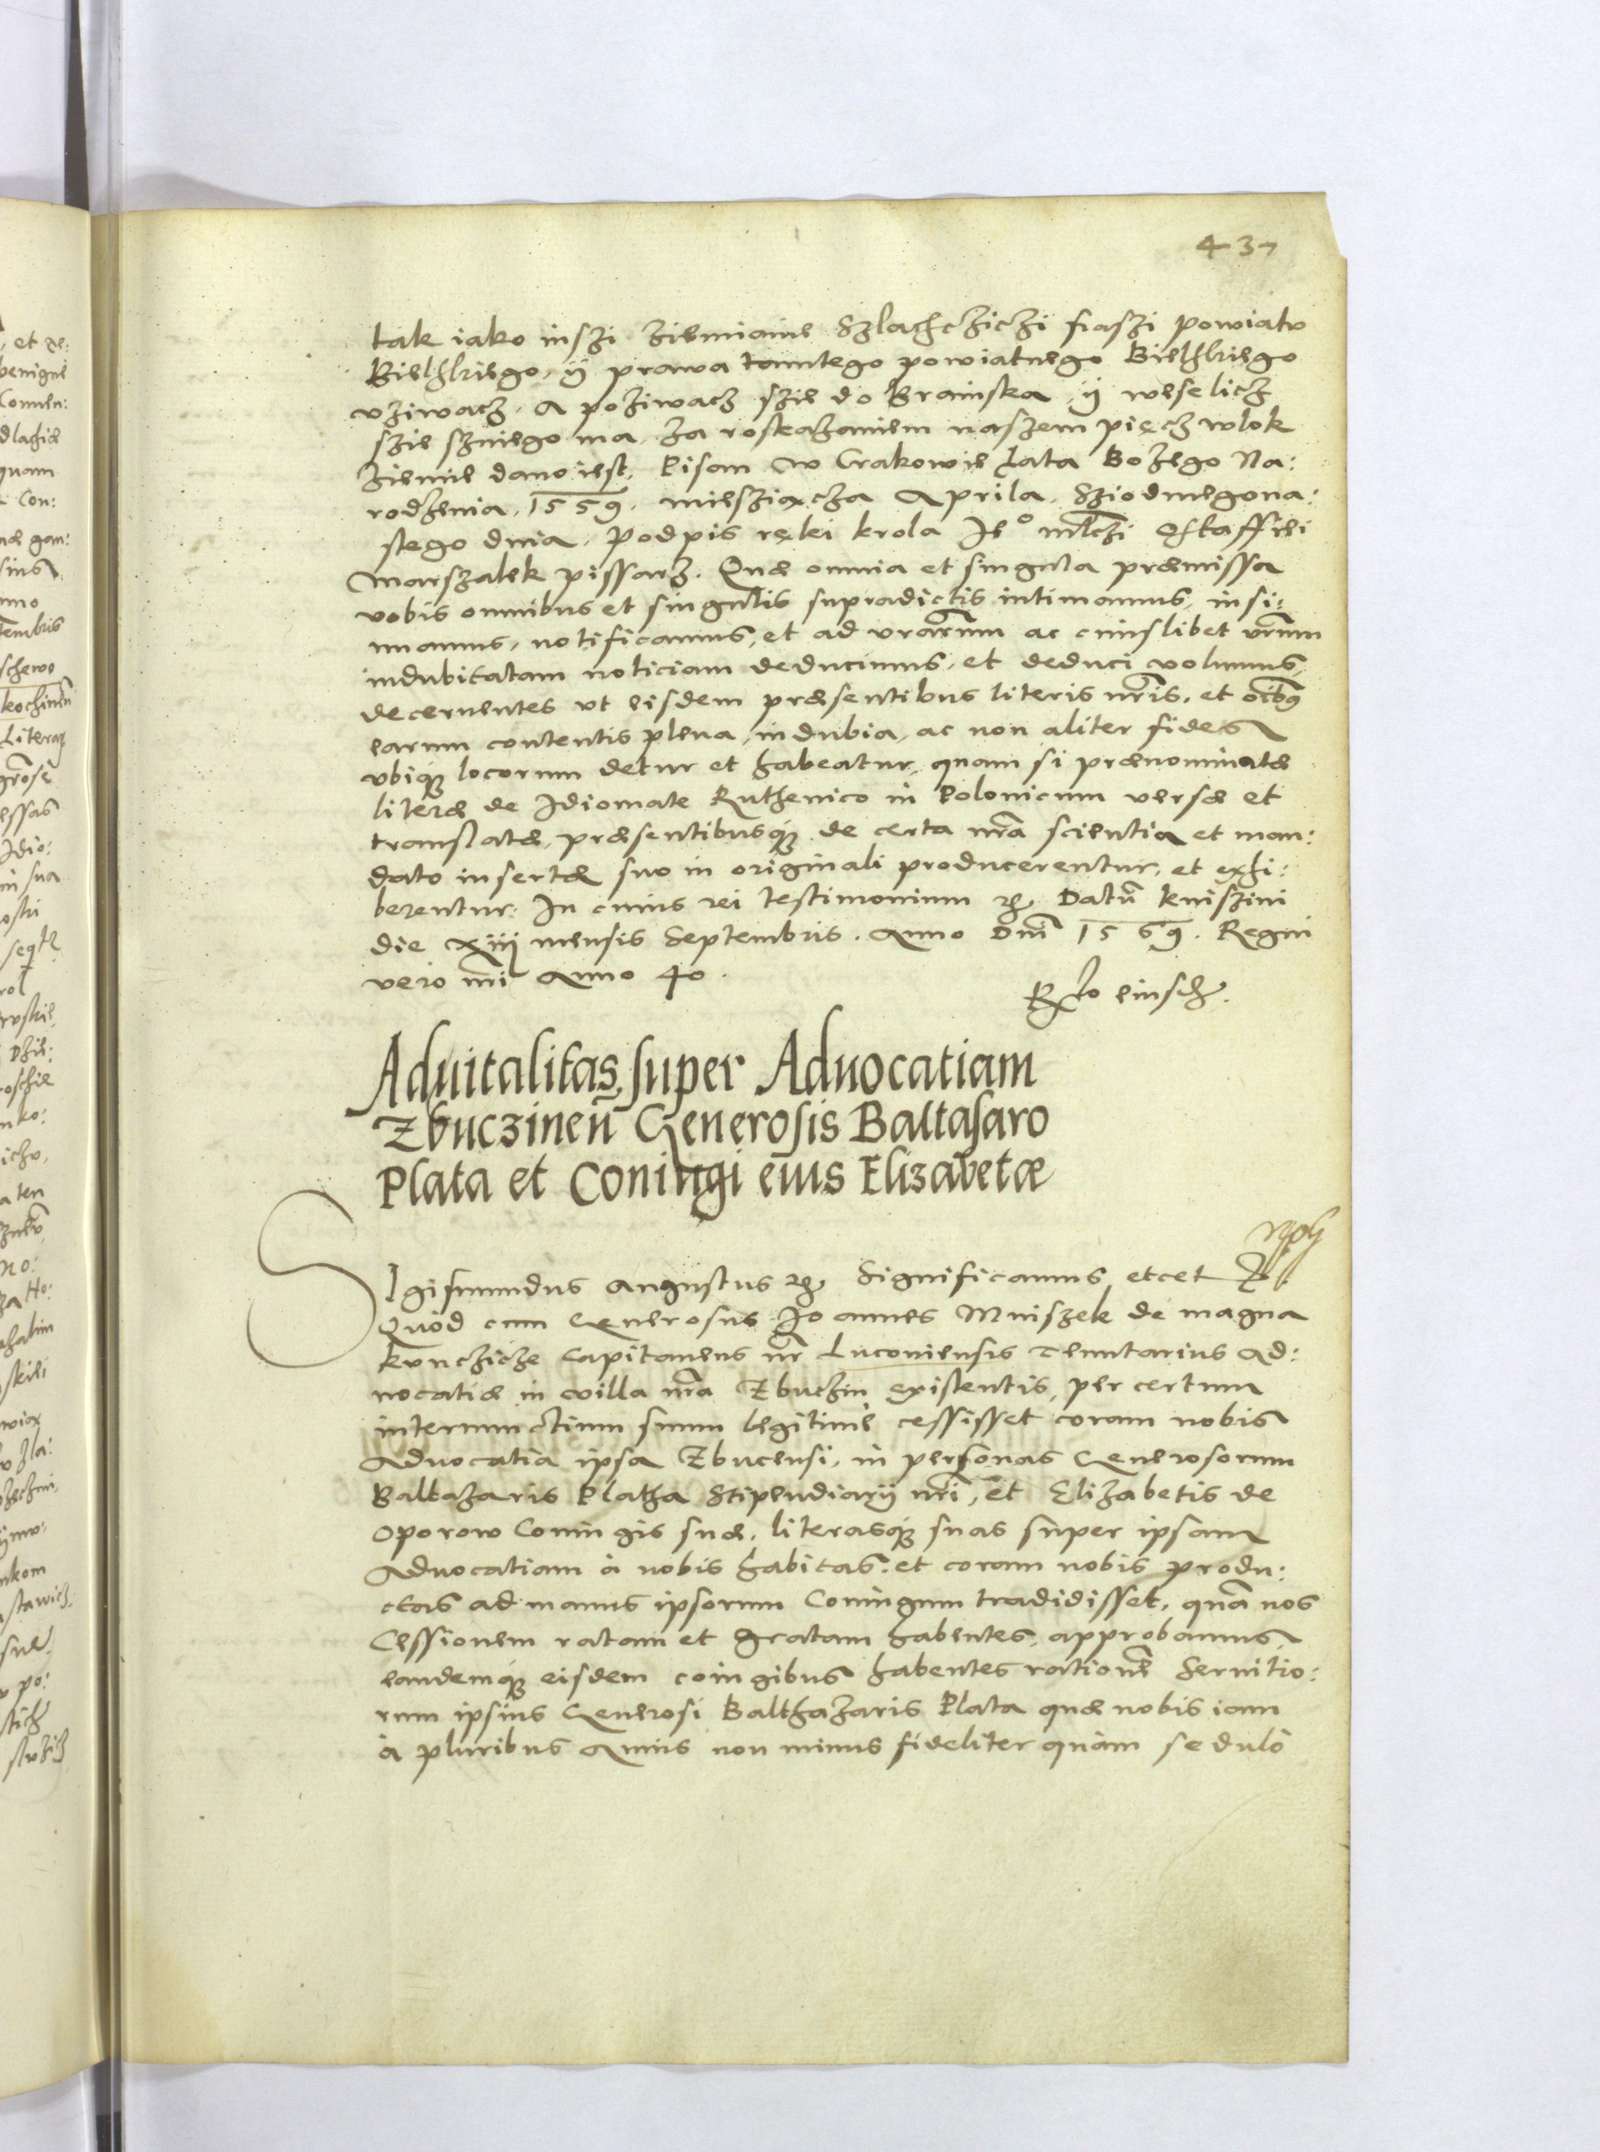 437
tak iako inszi ziemianie Szlachcziczi naszi powiatu
Bielskiego, ÿ prawa tamtego powiatnego Bielskiego
vziwacz. A poziwacz szie do Brainska, ÿ weselicz
szie szniego ma, za roskazaniem naszem pięcz wlok
ziemie dano iest. Pisan w Crakowie Lata Bożego Na:
rodzenia, 1559. miesziącza Aprila. Sziodmegona:
stego dnia. Podpis ręki krola Ie° mlchi Ostaffiei
Marszalek pissarz. Quæ omnia et singula præmissa
vobis omnibus et singulis supradictis intimamus, insi:
nuamus, notificamus, et ad vrarum ac cuiuslibet vrum
indubitatam noticiam deducimus, et deduci volumus,
decernentes vt eisdem præsentibus literis nris, et oibus
earum contentis plena, indubia, ac non aliter fides
vbiqꝫ locorum detur et habeatur, quam si prænominatæ
literæ de Idiomate Ruthenico in Polonicum versæ et
translatæ, præsentibusqꝫ de certa nra scientia et man:
dato insertæ suo in originali producerentur, et exhi:
berentur. In cuius rei testimonium etc. Datum Kniszini
die xiiij mensis Septembris. Anno Dni 1569. Regni
vero nri Anno 40.
Rlo eiusdem.
Aduitalitas super Aduocatiam
Zbuczinen Generosis Baltasaro
Plata et Coniugi eius Elizabetæ
Sigismundus Augustus etc. Significamus, etcet
Quod cum Generosus Ioannes Mniszek de magna
Kunchicze Capitaneus nr Luconiensis Tenutarius Ad:
uocatiæ in villa nra Zbuchin existentis, per certum
internunctium suum legitime cessisset coram nobis
Aduocatia ipsa Zbucensi, in personas Generosorum
Baltazaris Platha Stipendiarij nri, et Elizabetis de
Oporow Coniugis suæ, literasqꝫ suas super ipsam
Aduocatiam à nobis habitas, et coram nobis produ:
ctas ad manus ipsorum Coniugum tradidisset, quam nos
Cessionem ratam et gratam habentes, approbamus,
eandemqꝫ eisdem coniugibus habentes rationem Seruitio:
rum ipsius Generosi Balthazaris Plata quæ nobis iam
à pluribus Annis non minus fideliter quàm sedulò